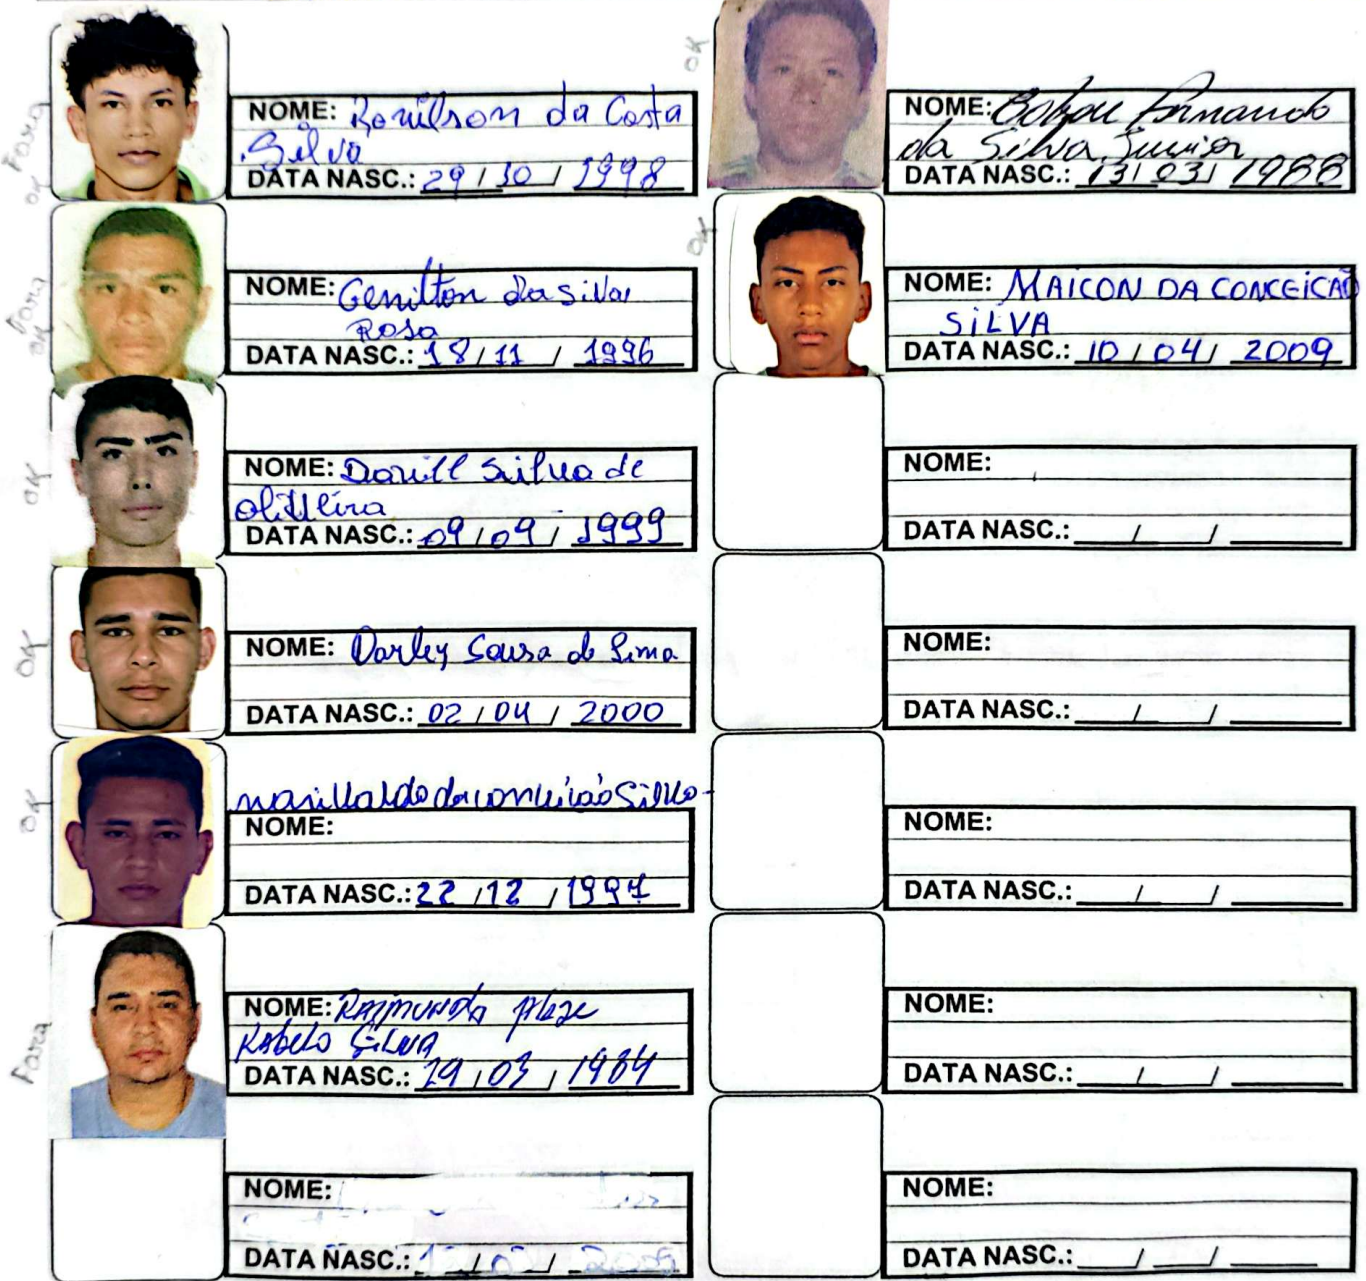 Fora
OK
NOME: Ronilson da Costa
Silva
DATA NASC.: 29 / 10 / 1998
Fora
OK
NOME: Genilton da Silva
Rosa
DATA NASC.: 18 / 11 / 1996
OK
NOME: Danill Silva de
DATA NASC.: 09 / 09 / 1999
OK
NOME: Darley Sousa de Lima
DATA NASC.: 02 / 04 / 2000
OK
marivaldo da conceição Silva
NOME:
DATA NASC.: 22 / 12 / 1997
Fora
NOME: Raimundo
Rabelo Silva
DATA NASC.: 29 / 03 / 1984
NOME:
DATA NASC.:
OK
NOME: Fernando
da Silva Junior
DATA NASC.: 13 / 03 / 1988
OK
NOME: MAICON DA CONCEICÃO
SILVA
DATA NASC.: 10 / 04 / 2009
NOME:
DATA NASC.: / /
NOME:
DATA NASC.: / /
NOME:
DATA NASC.: / /
NOME:
DATA NASC.: / /
NOME:
DATA NASC.: / /